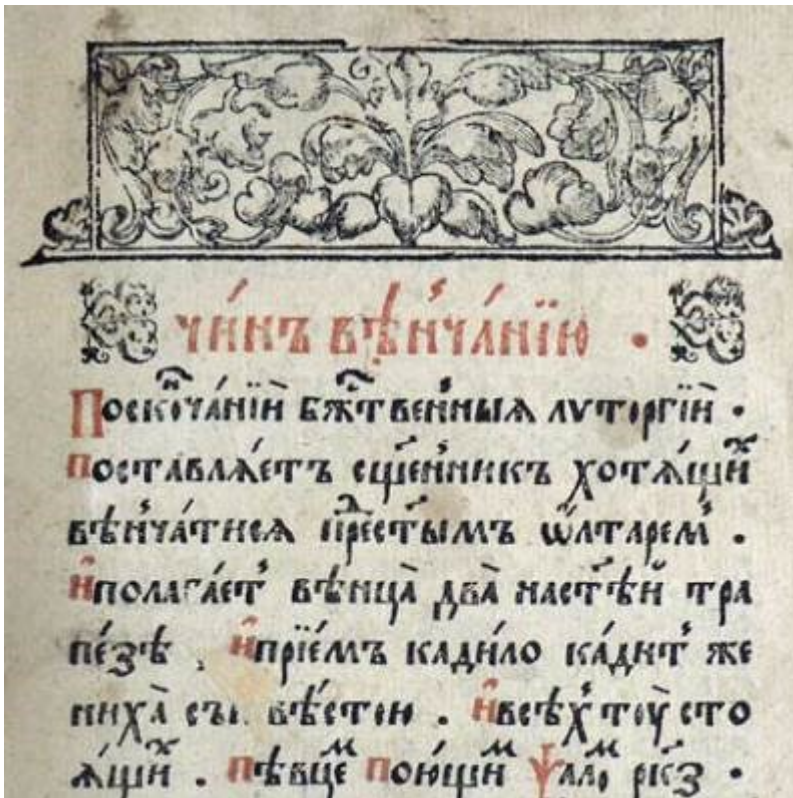 чи́нъ вѣнча́нїю .
Поскон҇ча́нїи бж҇твенныѧ лѵторгїи .
поставлѧ́етъ сщ҃е́нникъ хотѧ́щиⷯ
вѣнча́тисѧ преⷣст҃ы́мъ ѡ҆лтаре́м .
и҆полага́ет вѣнца̀ два̀ наст҃ѣй тра
пе́зѣ , и҆прїе́мъ кади́ло ка́дит же
ниха̀ съ невѣ́стою . и҆всѣ́х тоу̀ сто
ѧ́щиⷯ . пѣвце́ⷨ пою́щиⷨ ѱалоⷨ рк҃з .